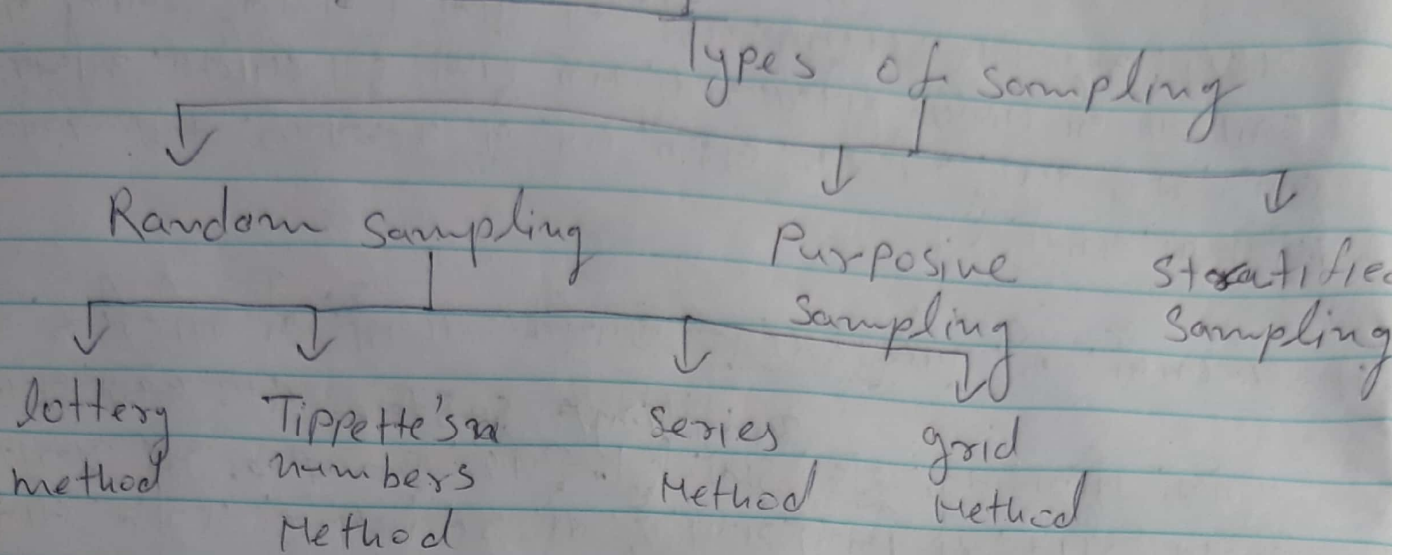 Types of sampling
Random sampling
Purposive
Sampling
Stratified
Sampling
lottery
method
Tippette's
numbers
Method
Series
Method
grid
Method